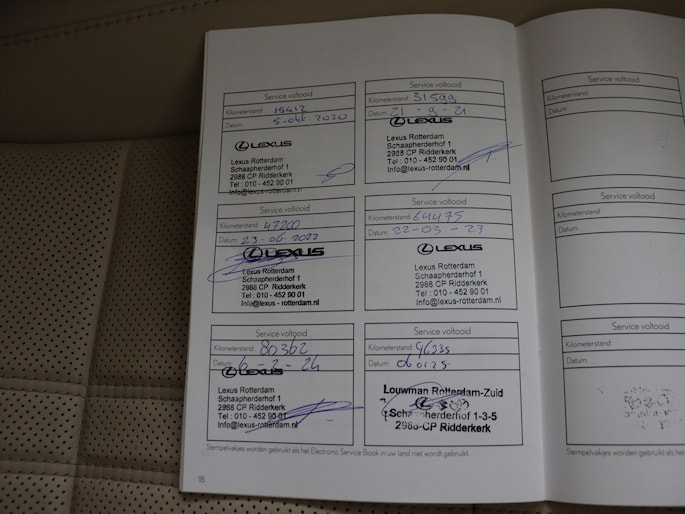 Service voltooid
Kilometerstand: 15412
Datum: 5-okt-2020
LEXUS
Lexus Rotterdam
Schaapherderhof 1
2988 CP Ridderkerk
Tel : 010 - 452 90 01
Info@lexus-rotterdam.nl
Service voltooid
Kilometerstand: 31599
Datum: 21-9-21
LEXUS
Lexus Rotterdam
Schaapherderhof 1
2988 CP Ridderkerk
Tel : 010 - 452 90 01
Info@lexus-rotterdam.nl
Service voltooid
Kilometerstand: 47200
Datum: 23-06-2022
LEXUS
Lexus Rotterdam
Schaapherderhof 1
2988 CP Ridderkerk
Tel : 010 - 452 90 01
Info@lexus - rotterdam.nl
Service voltooid
Kilometerstand: 64475
Datum: 22-03-23
LEXUS
Lexus Rotterdam
Schaapherderhof 1
2988 CP Ridderkerk
Tel : 010 - 452 90 01
Info@lexus-rotterdam.nl
Service voltooid
Kilometerstand: 80362
Datum: 6-2-24
LEXUS
Lexus Rotterdam
Schaapherderhof 1
2988 CP Ridderkerk
Tel : 010 - 452 90 01
Info@lexus-rotterdam.nl
Service voltooid
Kilometerstand: 96235
Datum: 060125
Louwman Rotterdam-Zuid
Schaapherderhof 1-3-5
2988-CP Ridderkerk
Stempelvakjes worden gebruikt als het Electronic Service Book in uw land niet wordt gebruikt.
18
Service voltooid
Kilometerstand:
Datum:
Service voltooid
Kilometerstand:
Datum:
Service voltooid
Kilometerstand:
Datum:
Stempelvakjes worden gebruikt als he